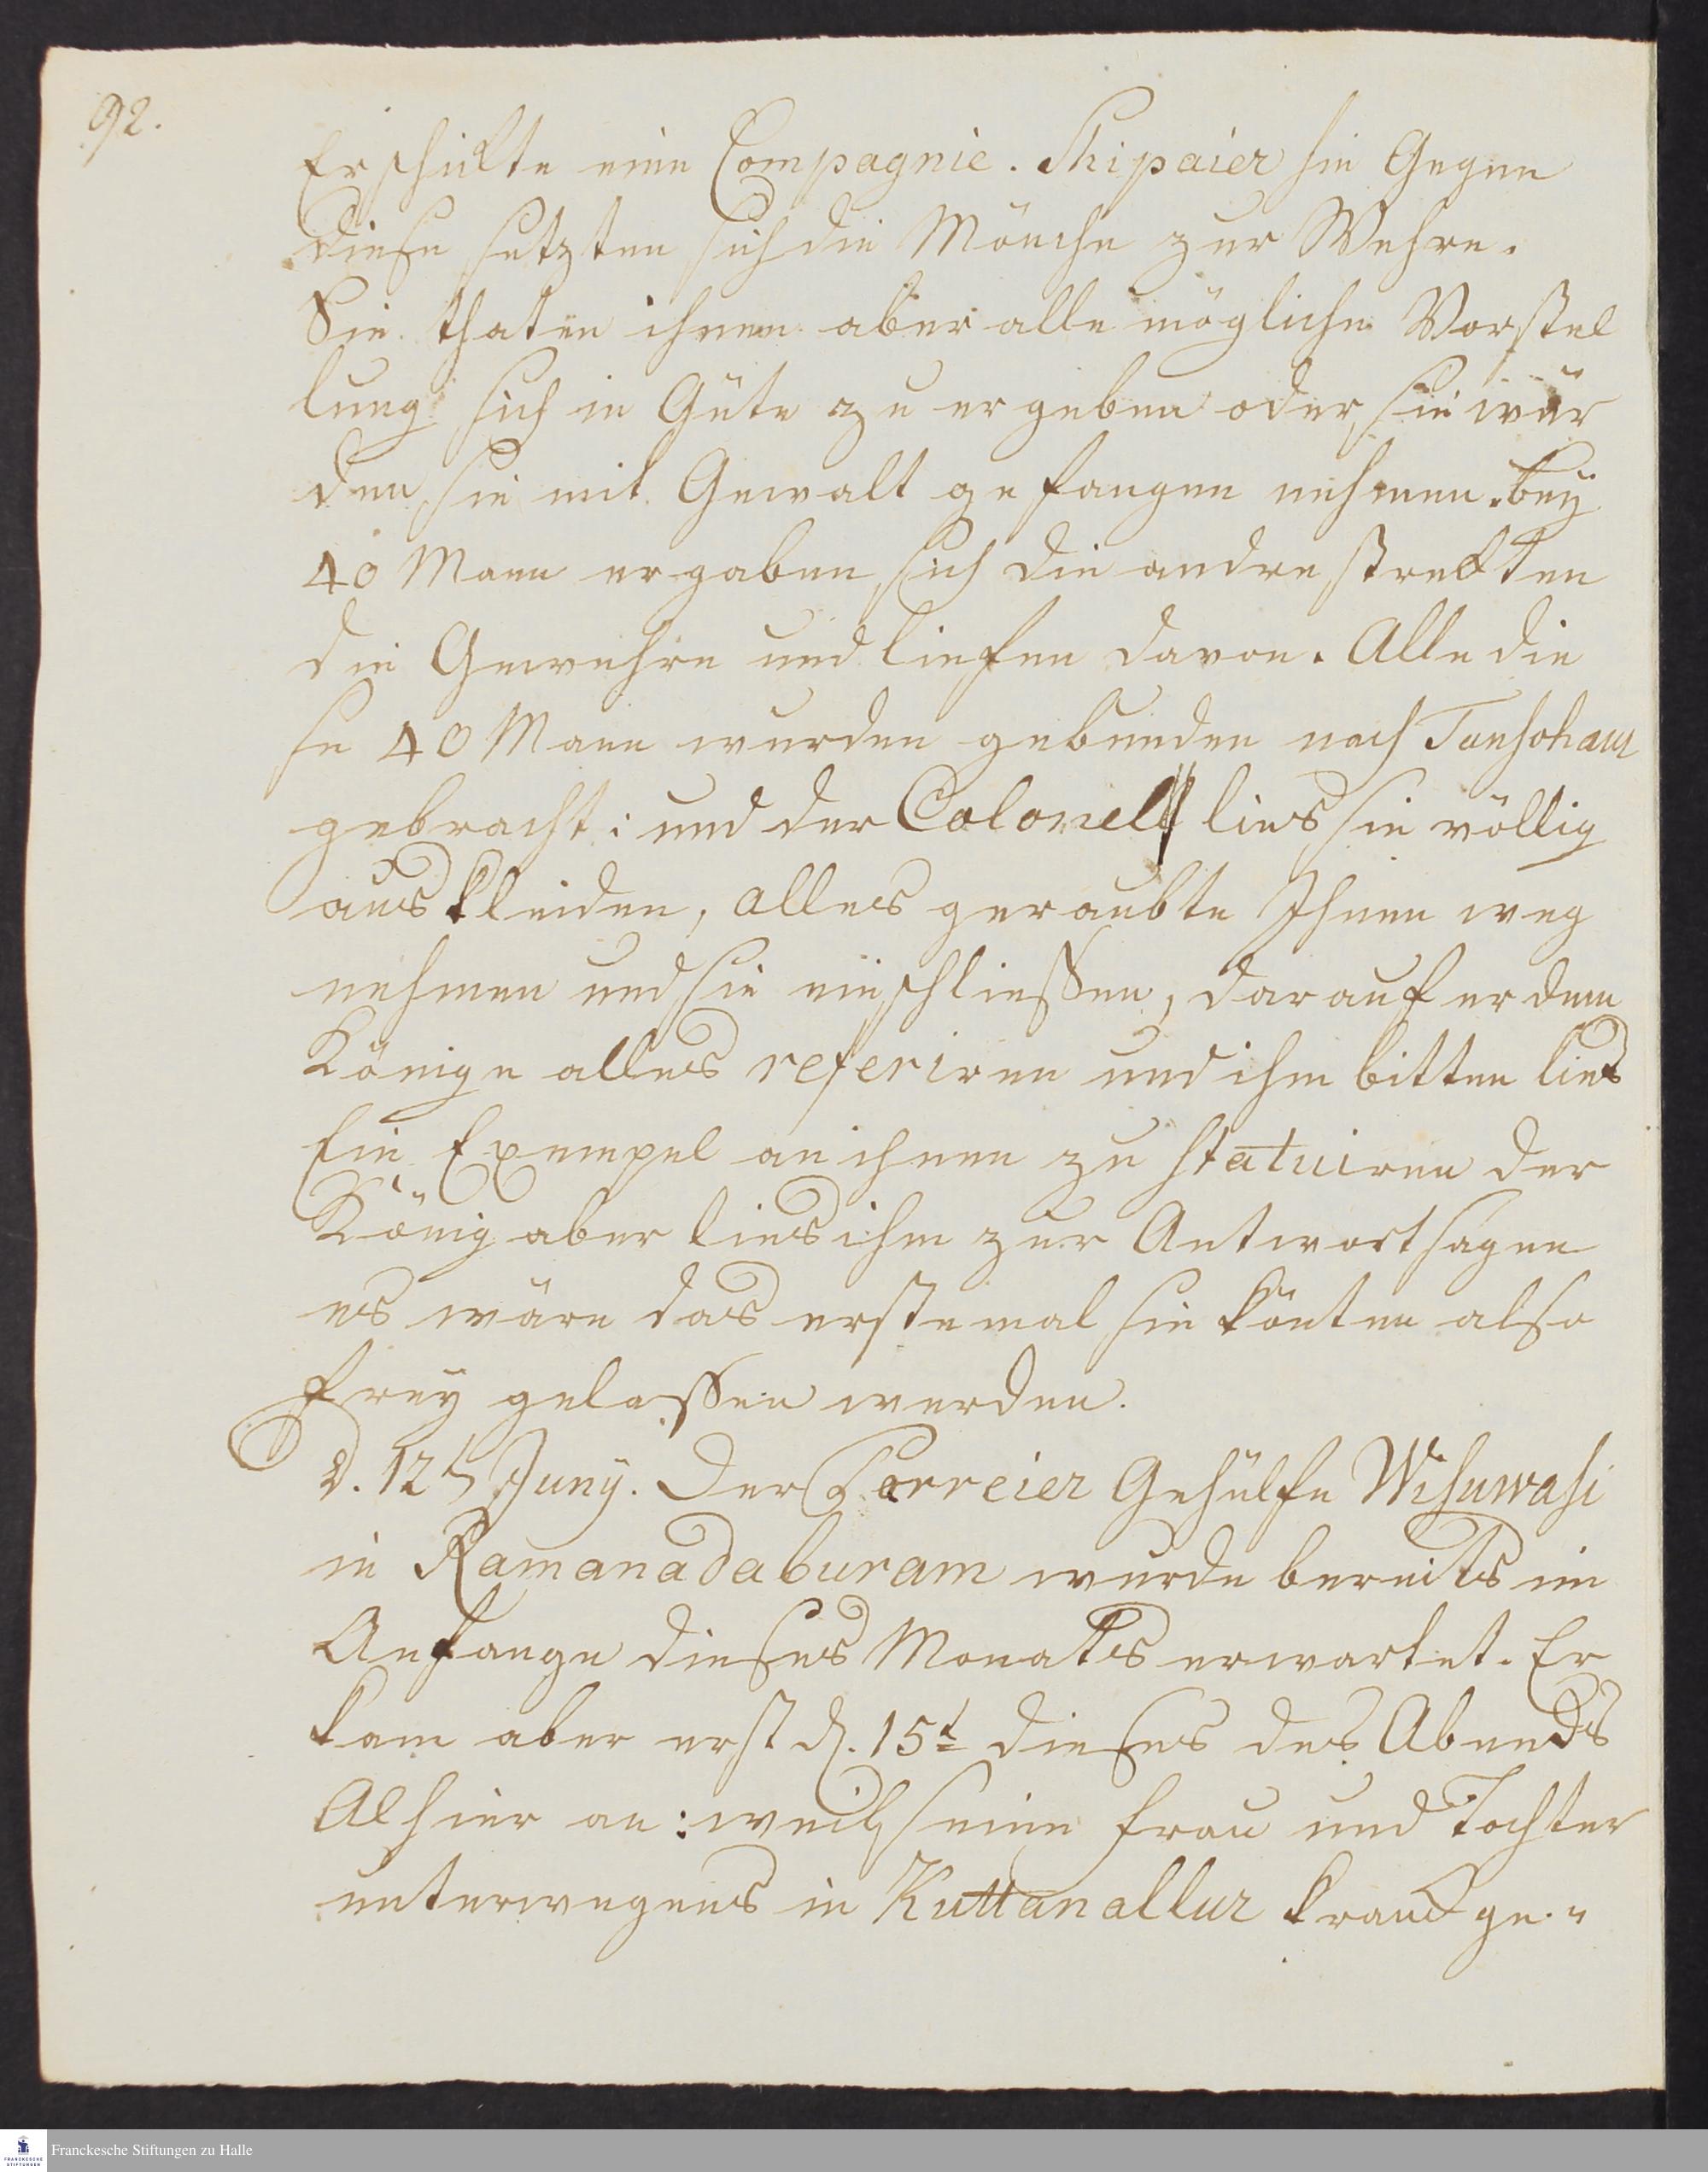 92.
Er schikte eine Compagnie. Shipaier hin Gegen
diese setzten sich die Mönche zur Wehre.
Sie thaten ihnen aber alle mögliche Vorstel
lung sich in Güte zu ergeben oder sie wür
den sie mit Gewalt gefangen nehmen. bey
40 Mann ergaben sich die andre strekten
die Gewehre und liefen davon. Alle die
se 40 Mann wurden gebunden nach Tanschaur
gebracht: und der Colonell lies sie völlig
auskleiden, alles geraubte Ihnen weg
nehmen und sie einschließen, darauf er dem
Könige alles referiren und ihm bitten lies
Ein Exempel an ihnen zu statuiren der
König aber lies ihm zur Antwort sagen
es wäre das erstemal sie könten also
frey gelassen werden.
d. 12t Juny. Der Parreier Gehülfe Wisuwasi
in Ramanadaburam wurde bereits im
Anfange dieses Monats erwartet. Er
kam aber erst d. 15t dieses des Abends
Alhier an: weil seine Frau und Tochter
unterwegens in Kuttanallur kranck ge-
Franckesche Stiftungen zu Halle
FRANCKESCHE
STIFTUNGEN